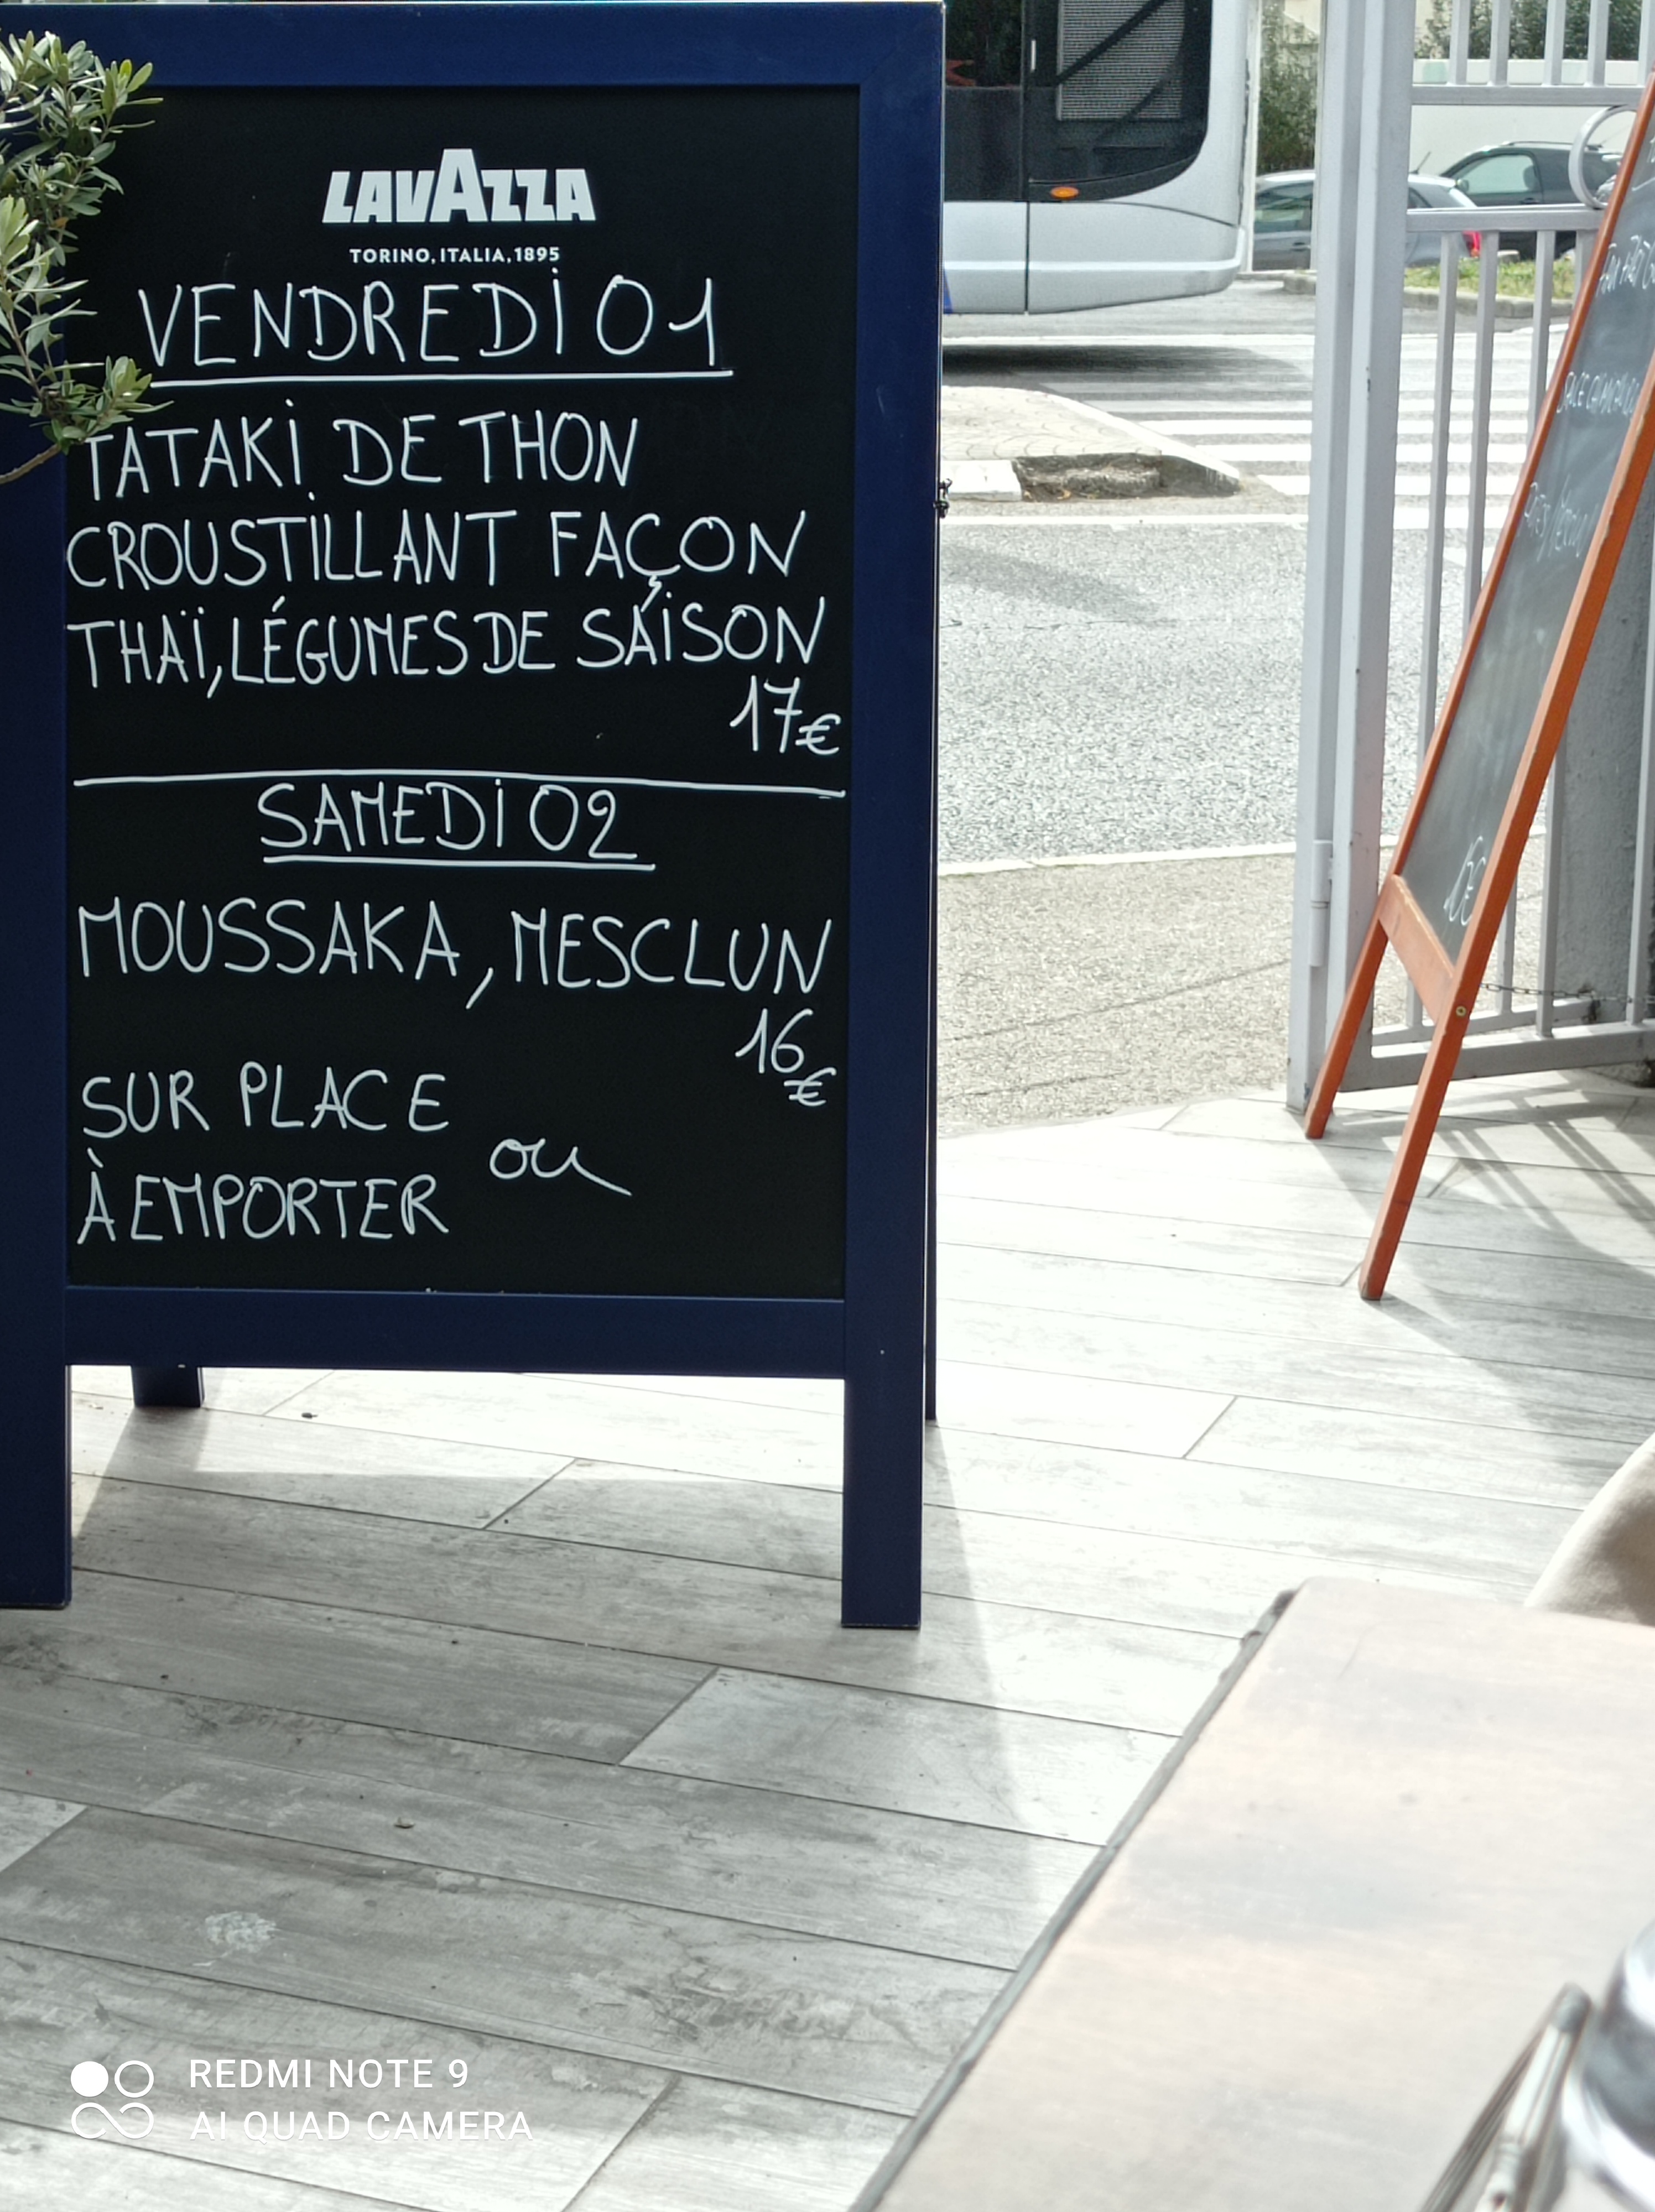 LAVAZZA
TORINO, ITALIA, 1895
VENDREDI 01
TATAKI DE THON
CROUSTILLANT FAÇON
THAÏ, LÉGUMES DE SAISON
17€
SAMEDI 02
MOUSSAKA, MESCLUN
16€
SUR PLACE
ou
À EMPORTER
REDMI NOTE 9
AI QUAD CAMERA